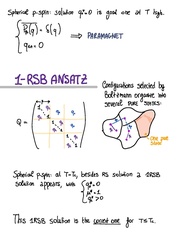 Spherical p-spin: solution q*=0 is good one at T high.
P(q) = δ(q)
q_EA = 0
=> PARAMAGNET
1-RSB ANSATZ
Q =
Configurations selected by
Boltzmann organize into
several pure states:
One pure state
Spherical p-spin: at T=Tc, besides RS solution a 1RSB
solution appears, with
q₁* ≠ 0
q₀* = 0
m* < 1
This 1RSB solution is the correct one for T≤Tc.